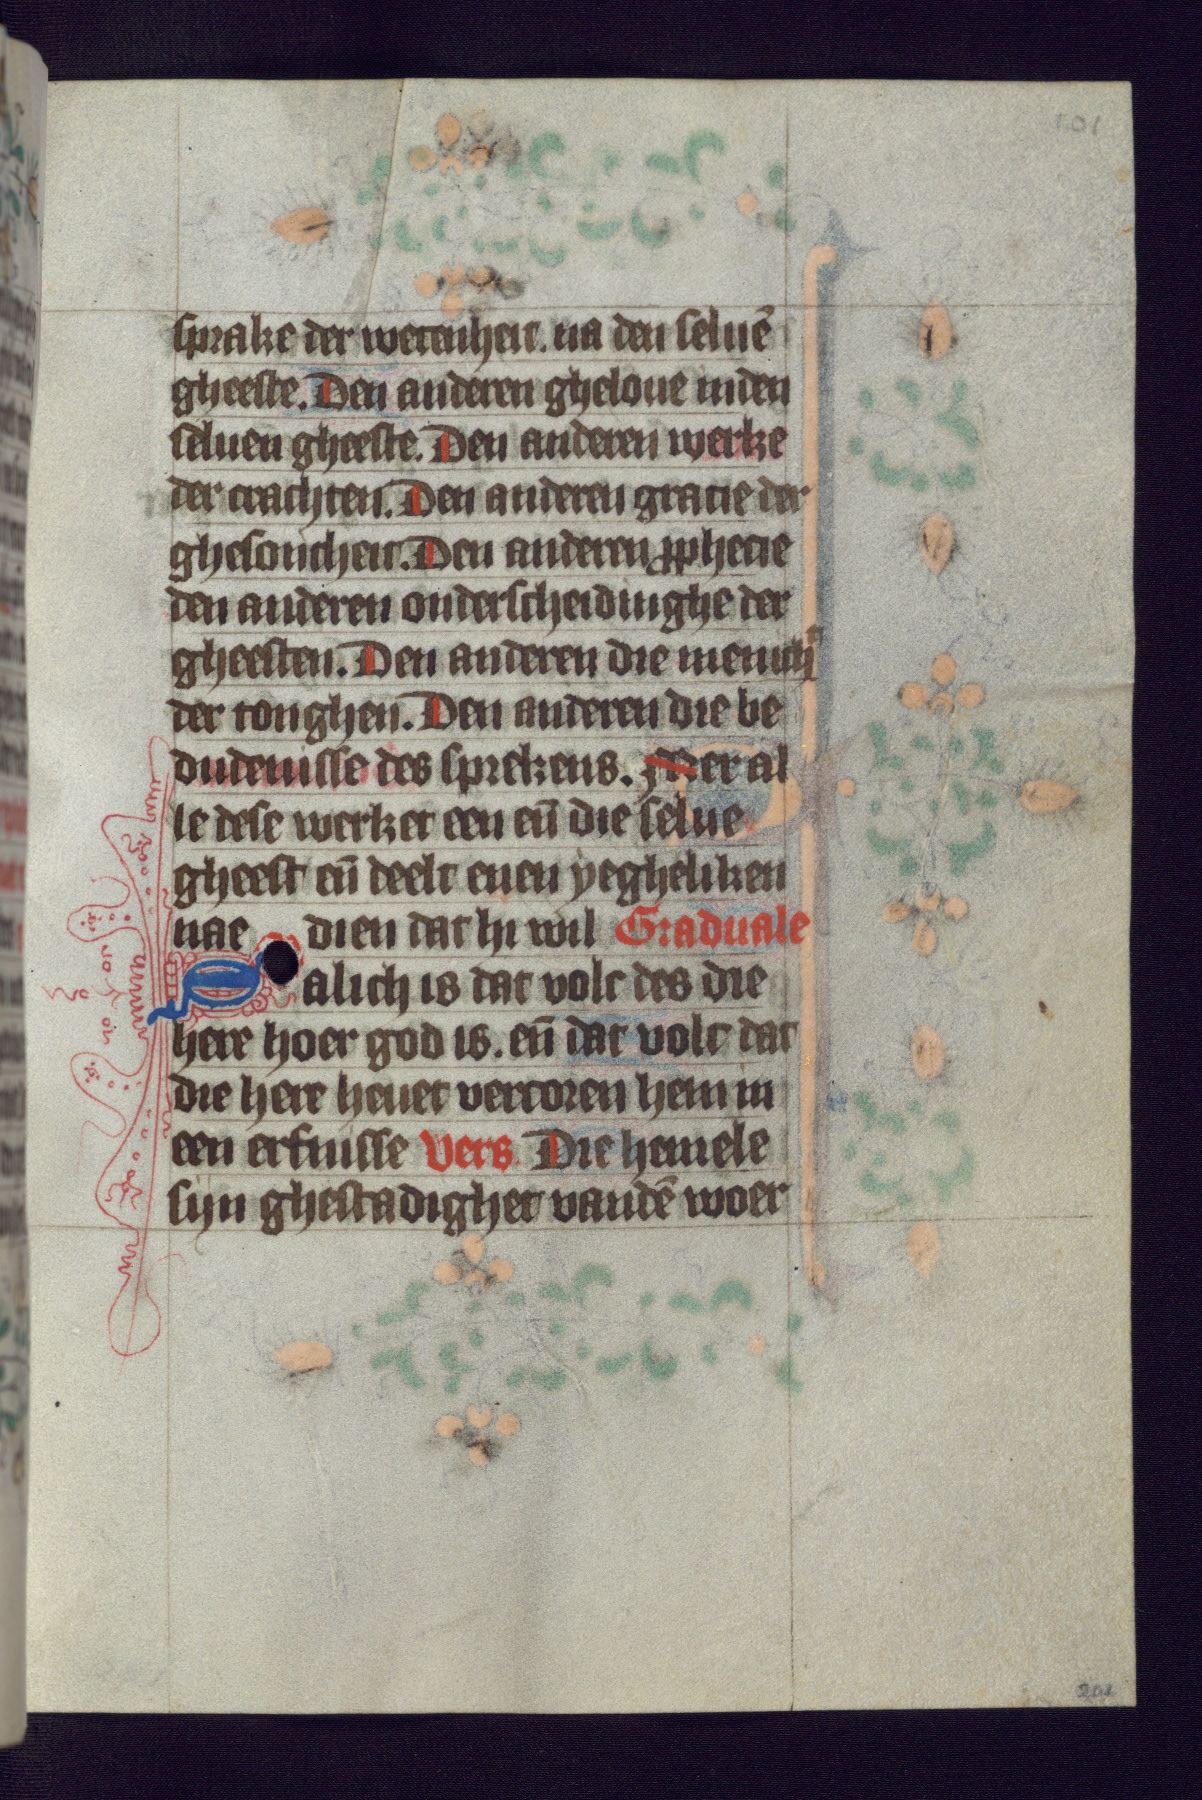 101
sprake der wetenheit. na den seluē
gheeste. Den anderen gheloue inden
seluen gheeste. Den anderen werke
der crachten. Den anderen gracie der
ghesontheit. Den anderen ꝓphecie
den anderen onderscheidinghe der
gheesten. Den anderen die menich
der tonghen. Den anderen die be
dudenisse des sprekens. Mer al
le dese werket een eñ die selue
gheest eñ deelt enen yegheliken
nae dien dat hi wil Graduale
Salich is dat volc des die
here hoer god is. eñ dat volc dat
die here heuet vercoren hem in
een erfnisse Vers Die hemele
sijn ghestadighet vandē woer